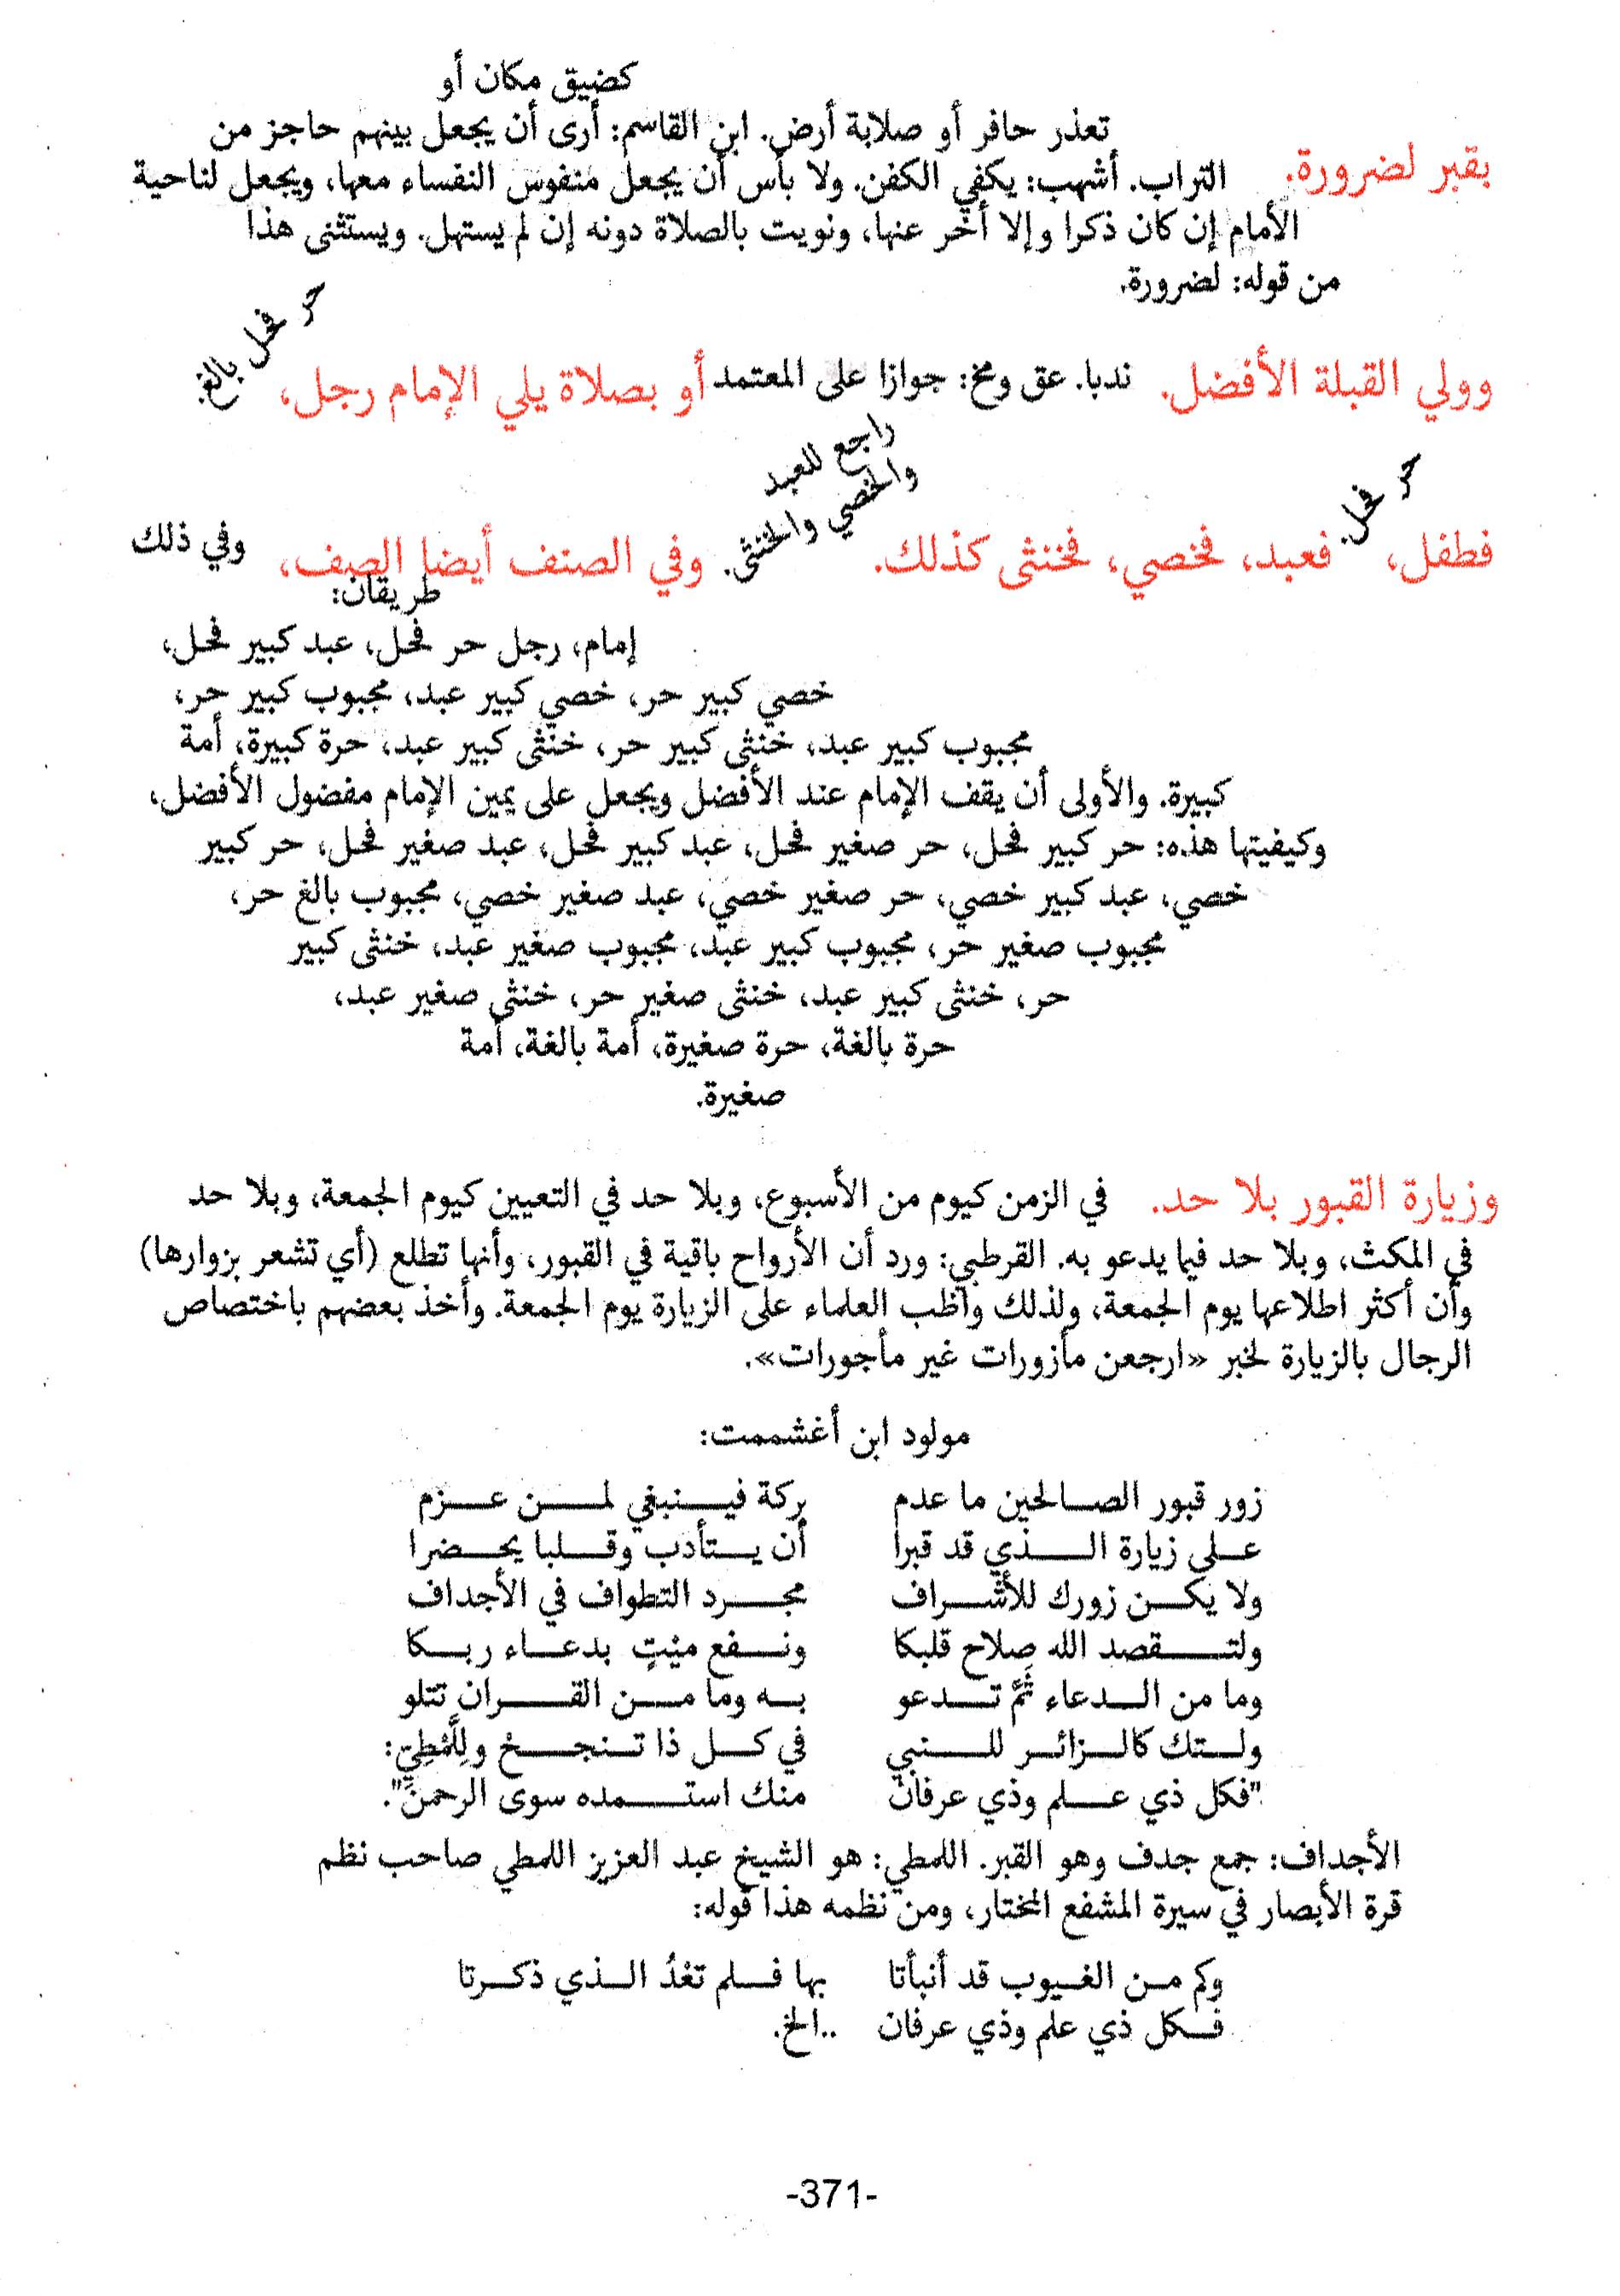 بقبر لضرورة. كضيق مكان أو
تعذر حافر أو صلابة أرض. ابن القاسم: أرى أن يجعل بينهم حاجز من
التراب. أشهب: يكفي الكفن. ولا بأس أن يجعل منفوس النفساء معها، ويجعل لناحية
الأمام إن كان ذكرا وإلا أخر عنها، ونويت بالصلاة دونه إن لم يستهل. ويستثنى هذا
من قوله: لضرورة.
وولي القبلة الأفضل. ندبا. عق ومخ: جوازا على المعتمد أو بصلاة يلي الإمام رجل، حر فحل بالغ.
فطفل، حر فحل. فعبد، فخصي، فخنثى كذلك. راجع للعبد
والخصي والخنثى. وفي الصنف أيضا الصف، وفي ذلك
طريقان:
إمام، رجل حر فحل، عبد كبير فحل،
خصي كبير حر، خصي كبير عبد، مجبوب كبير حر،
مجبوب كبير عبد، خنثى كبير حر، خنثى كبير عبد، حرة كبيرة، أمة
كبيرة. والأولى أن يقف الإمام عند الأفضل ويجعل على يمين الإمام مفضول الأفضل،
وكيفيتها هذه: حر كبير فحل، حر صغير فحل، عبد كبير فحل، عبد صغير فحل، حر كبير
خصي، عبد كبير خصي، حر صغير خصي، عبد صغير خصي، مجبوب بالغ حر،
مجبوب صغير حر، مجبوب كبير عبد، مجبوب صغير عبد، خنثى كبير
حر، خنثى كبير عبد، خنثى صغير حر، خنثى صغير عبد،
حرة بالغة، حرة صغيرة، أمة بالغة، أمة
صغيرة.
وزيارة القبور بلا حد. في الزمن كيوم من الأسبوع، وبلا حد في التعيين كيوم الجمعة، وبلا حد
في المكث، وبلا حد فيما يدعو به. القرطبي: ورد أن الأرواح باقية في القبور، وأنها تطلع (أي تشعر بزوارها)
وأن أكثر اطلاعها يوم الجمعة، ولذلك واظب العلماء على الزيارة يوم الجمعة. وأخذ بعضهم باختصاص
الرجال بالزيارة لخبر «ارجعن مأزورات غير مأجورات».
مولود ابن أغشممت:
زور قبور الصالحين ما عدم بركة فينبغي لمن عزم
على زيارة الذي قد قبرا أن يتأدب وقلبا يحضرا
ولا يكن زورك للأشراف مجرد التطواف في الأجداف
ولتقصد الله صلاح قلبكا ونفع ميْتٍ بدعاء ربكا
وما من الدعاء ثَمَّ تدعو به وما من القران تتلو
ولتك كالزائر للنبي في كل ذا تنجح ولِلَّمْطِيّ:
"فكل ذي علم وذي عرفان منك استمده سوى الرحمن".
الأجداف: جمع جدف وهو القبر. اللمطي: هو الشيخ عبد العزيز اللمطي صاحب نظم
قرة الأبصار في سيرة المشفع المختار، ومن نظمه هذا قوله:
وكم من الغيوب قد أنبأتا بها فلم تعْدُ الذي ذكرتا
فكل ذي علم وذي عرفان ..الخ.
-371-